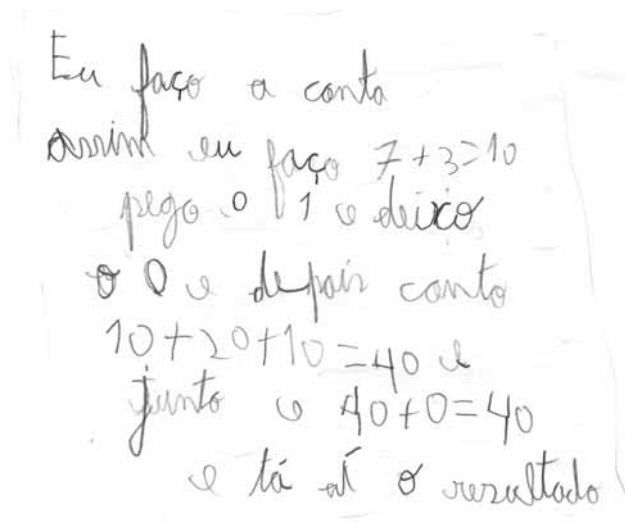 Eu faço a conta
assim eu faço 7+3=10
pego o 1 e deixo
o 0 e depois conto
10+20+10=40 e
junto e 40+0=40
e tá aí o resultado